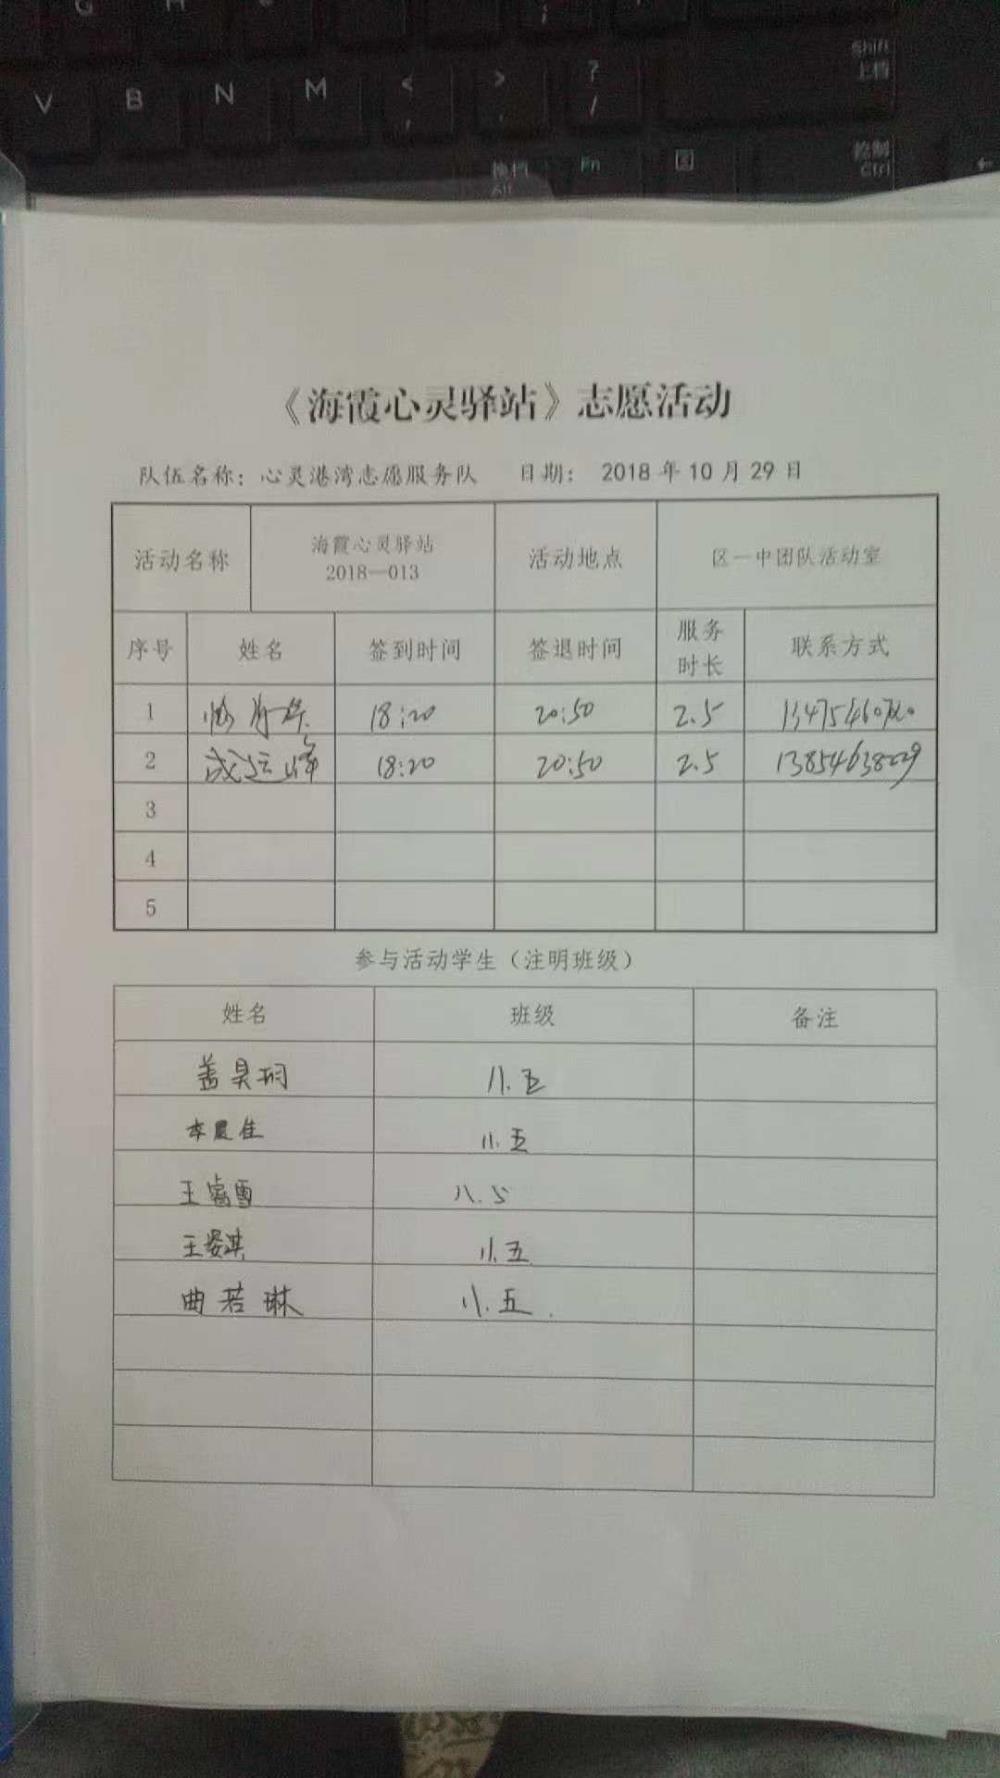 G H
V B N M < , > . ? /
Shift 上档
换档 Alt Fn 控制 Ctrl
《海霞心灵驿站》志愿活动
队伍名称：心灵港湾志愿服务队 日期： 2018 年 10 月 29 日
活动名称 海霞心灵驿站 2018—013 活动地点 区一中团队活动室
序号 姓名 签到时间 签退时间 服务时长 联系方式
1 18:20 20:50 2.5
2 成运峰 18:20 20:50 2.5
3
4
5
参与活动学生（注明班级）
姓名 班级 备注
盖昊玥 八.五
李晨佳 八.五
王睿雪 八.5
王姿淇 八.五
曲若琳 八.五.